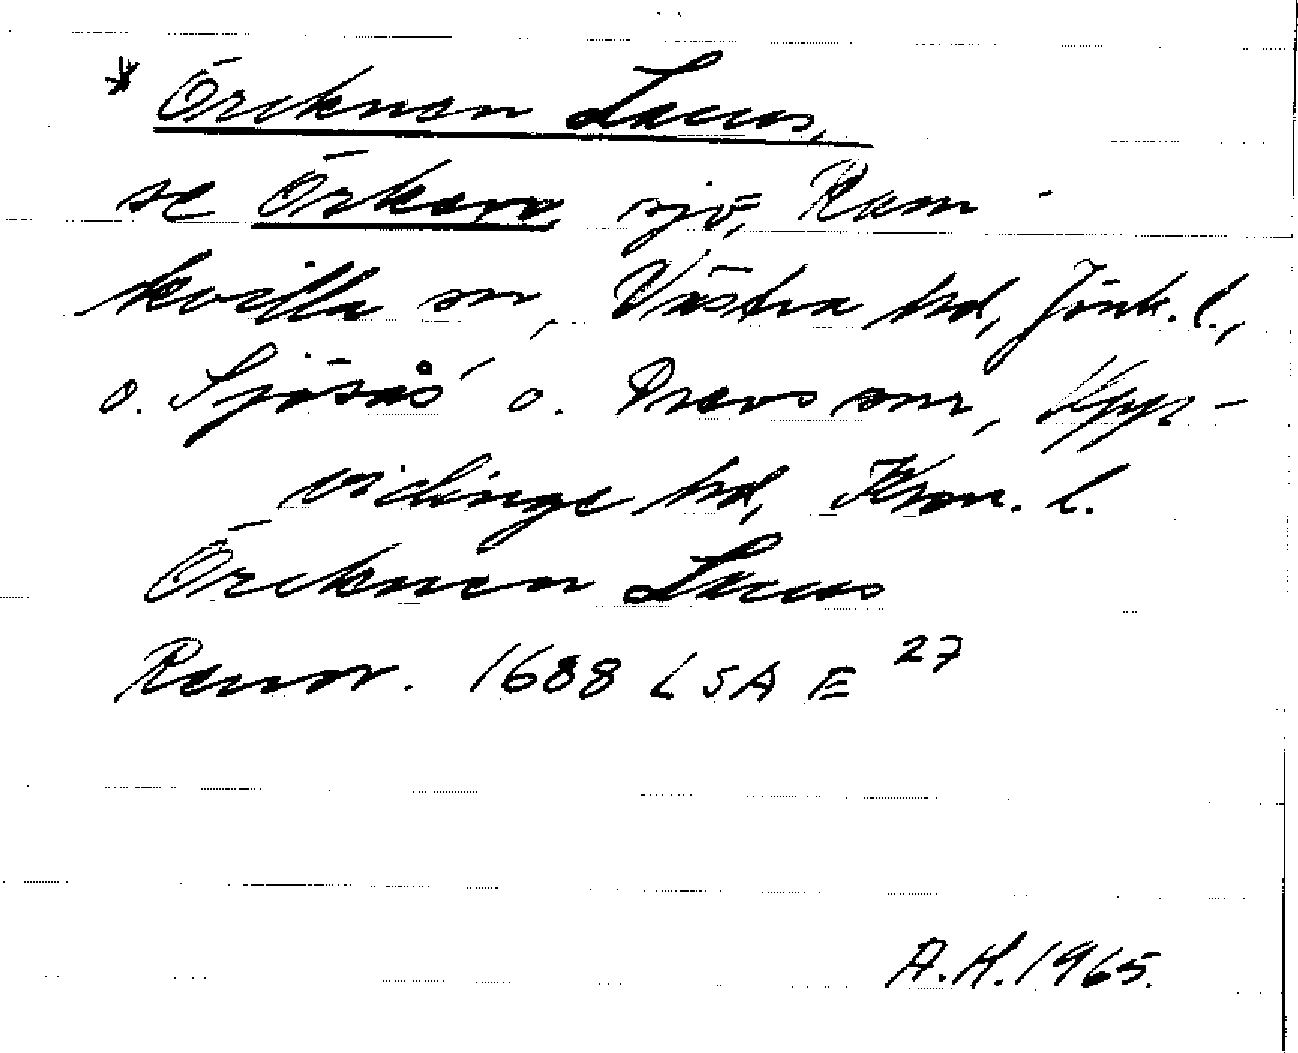 * Örcknen Lacus,
se Örken, sjö, Ram-
kvilla sn, Västra hd, Jönk. l.,
o. Sjösås o. Drevs snr, Upp-
vidinge hd, Kron. l.
Örcknen Lacus
Renov. 1688 LSA E 27
A.H. 1965.